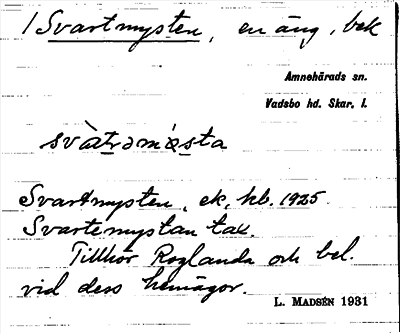 1 Svartmysten, en äng, bek
Amnehärads sn.
Vadsbo hd. Skar. l.
svàt̲ǝmỳs̲ta
Svartmysten, ek, hb. 1925.
Svartemystan tax.
Tillhör Roglanda och bel.
vid dess hemägor.
L. MADSÉN 1931